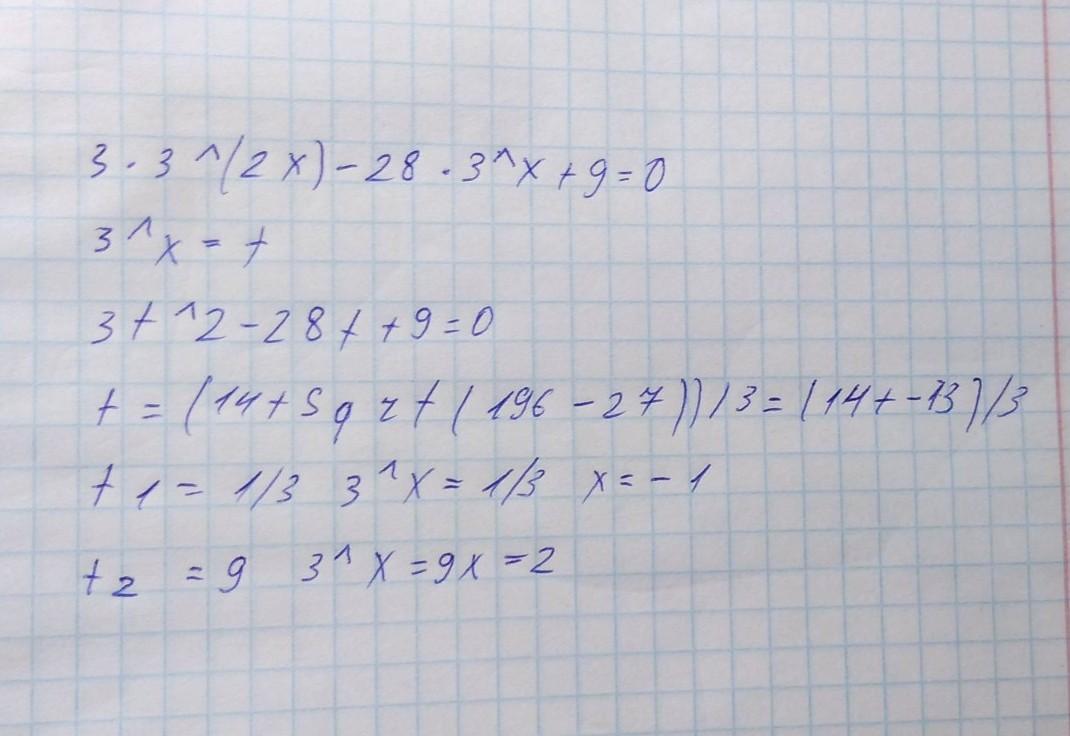 3 · 3 ^ (2 x) - 28 · 3 ^ x + 9 = 0
3 ^ x = t
3 t ^ 2 - 28 t + 9 = 0
t = (14 + s q r t ( 196 - 27 )) / 3 = (14 + - 13 ) / 3
t 1 = 1/3 3 ^ x = 1/3 x = - 1
t 2 = 9 3 ^ x = 9 x = 2